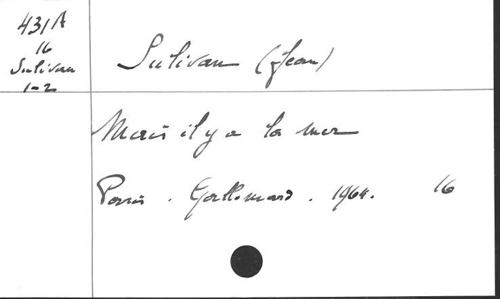 431A
16
Sulivan
1-2
Sulivan (Jean)
Mais il y a la mer
Paris. Gallimard. 1964. 16